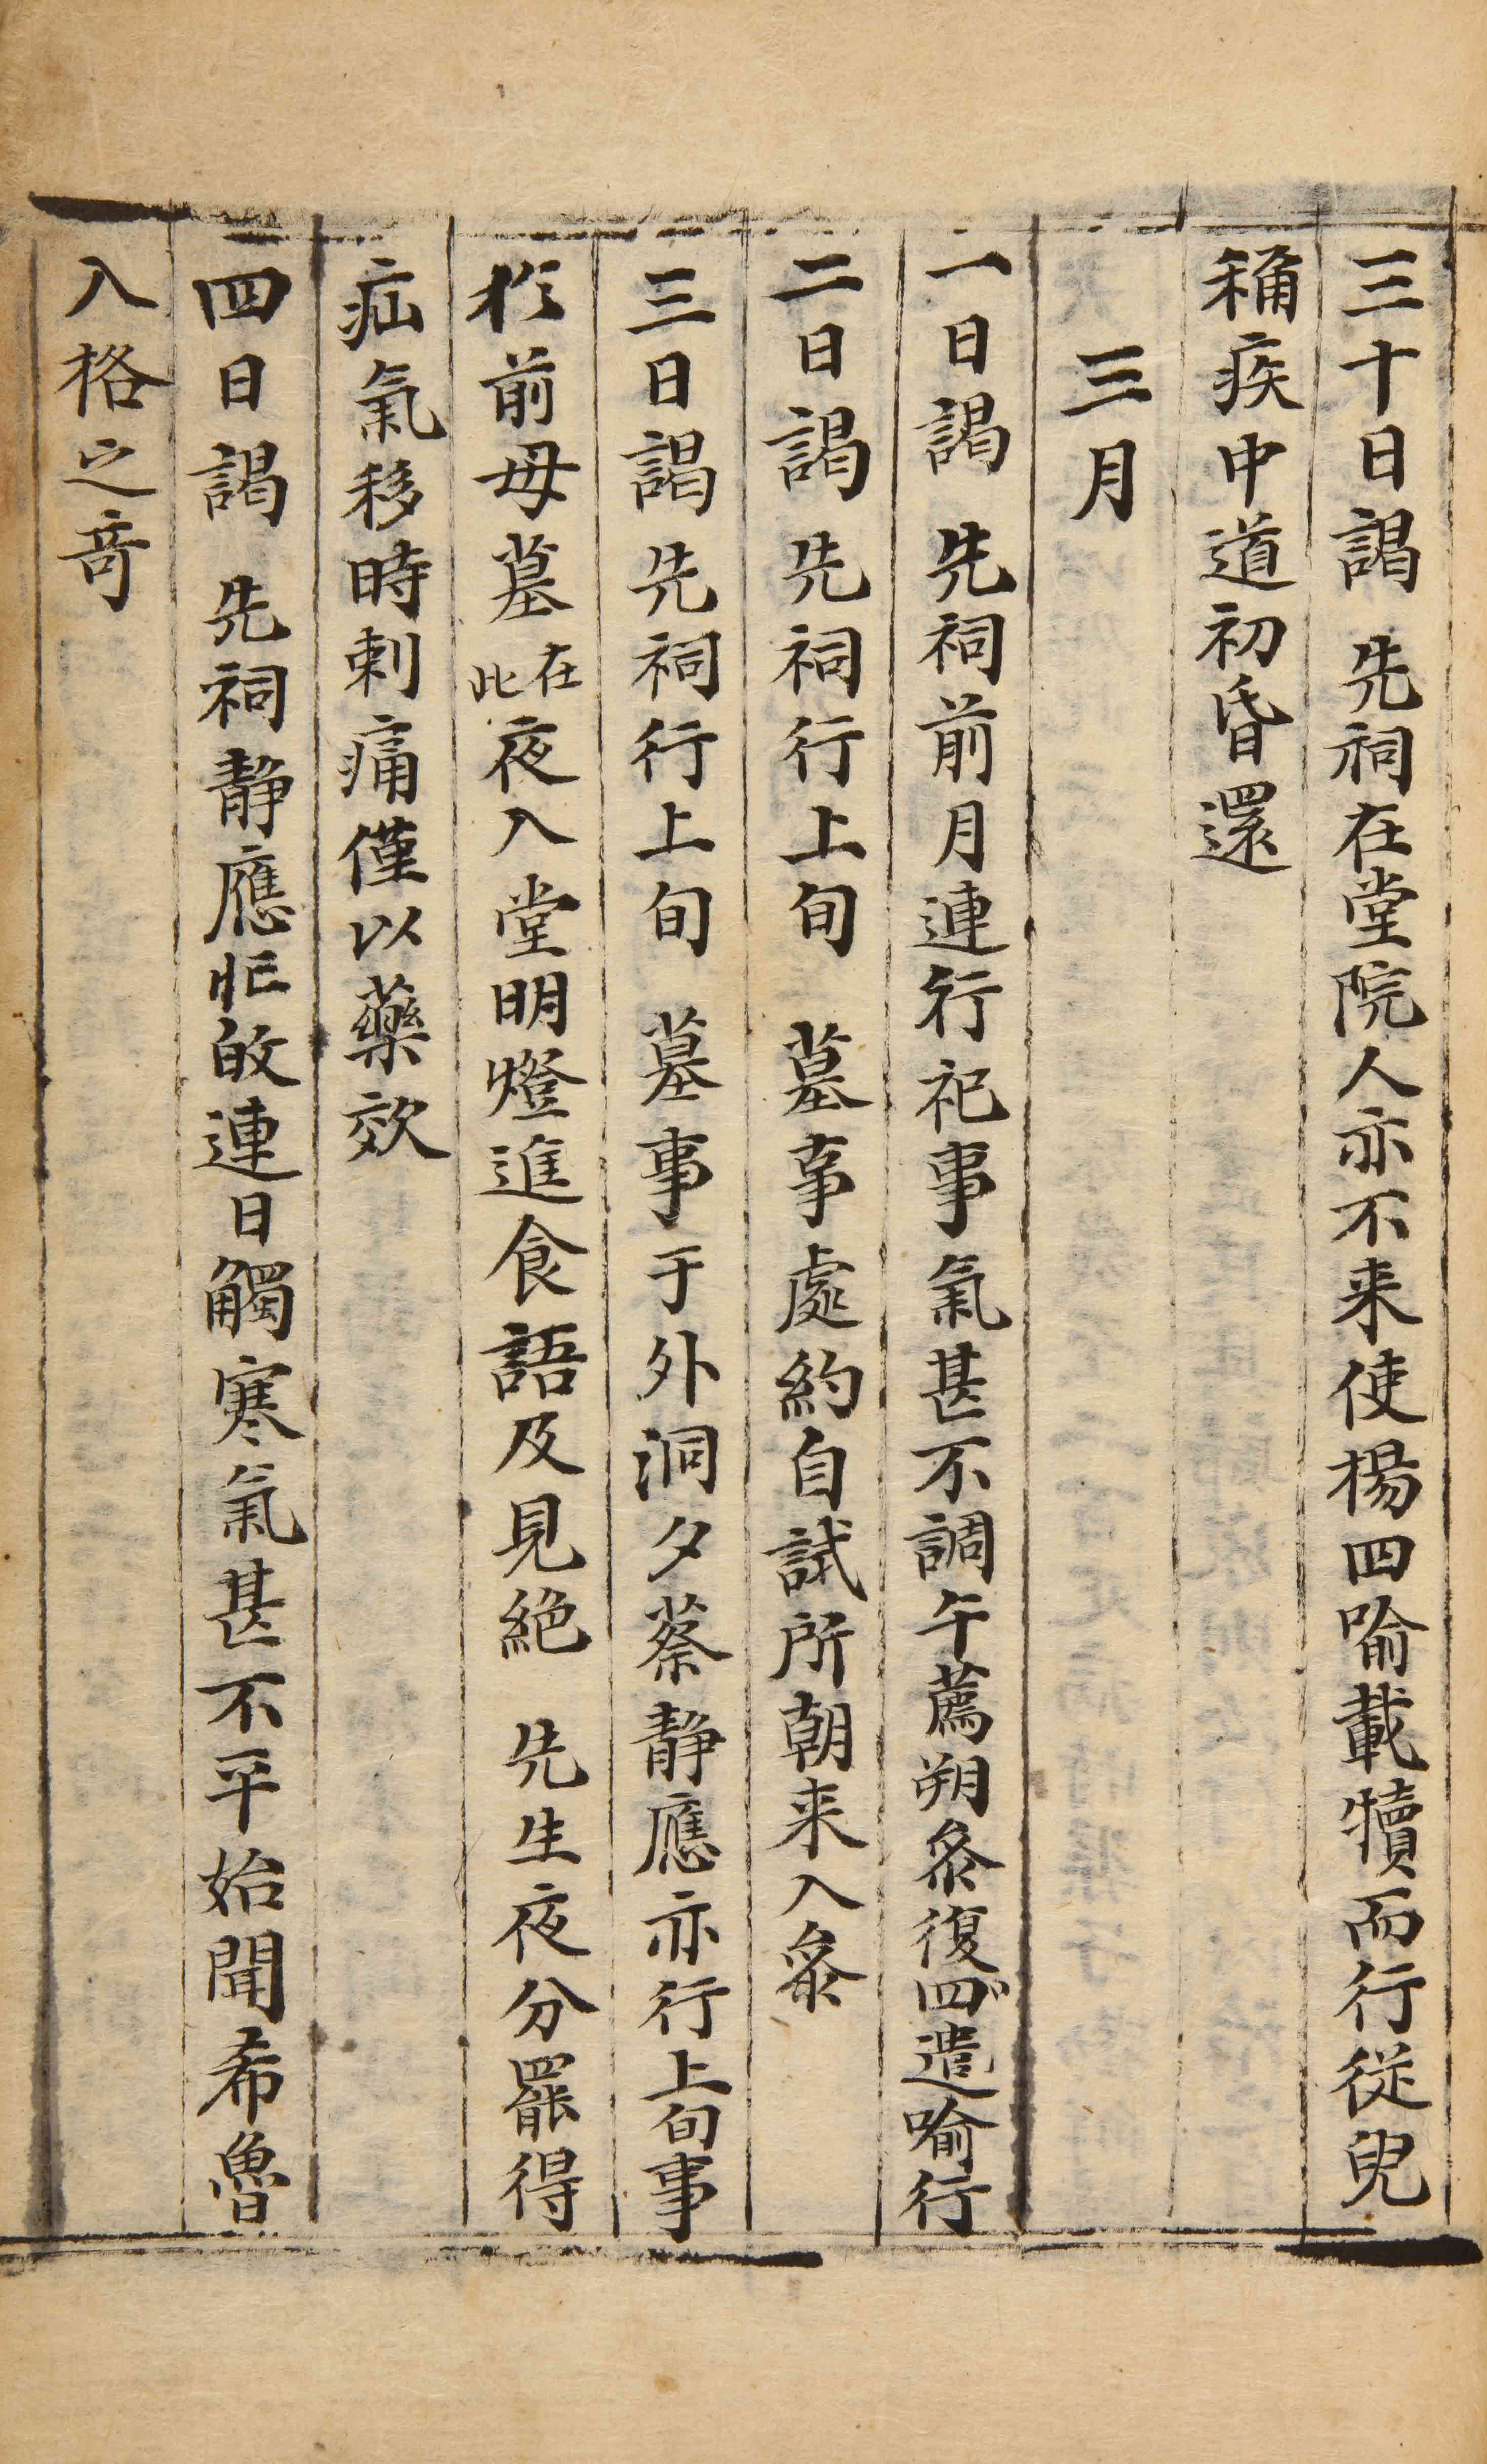 三十日謁 先祠在堂院人亦不来使楊四喻載犢而行従兒
稱疾中道初昏還
三月
一日謁 先祠前月連行祀事氣甚不調午薦朔叅復四遣喻行
二日謁先祠行上旬 墓事處約自試所朝来入叅
三日謁先祠行上旬 墓事于外洞夕蔡静應亦行上旬事
於前母墓在此夜入堂明燈進食語及見絶 先生夜分罷得
疝氣移時刺痛僅以藥效
四日謁 先祠静應連日觸寒氣甚不平始聞希魯
入格之竒